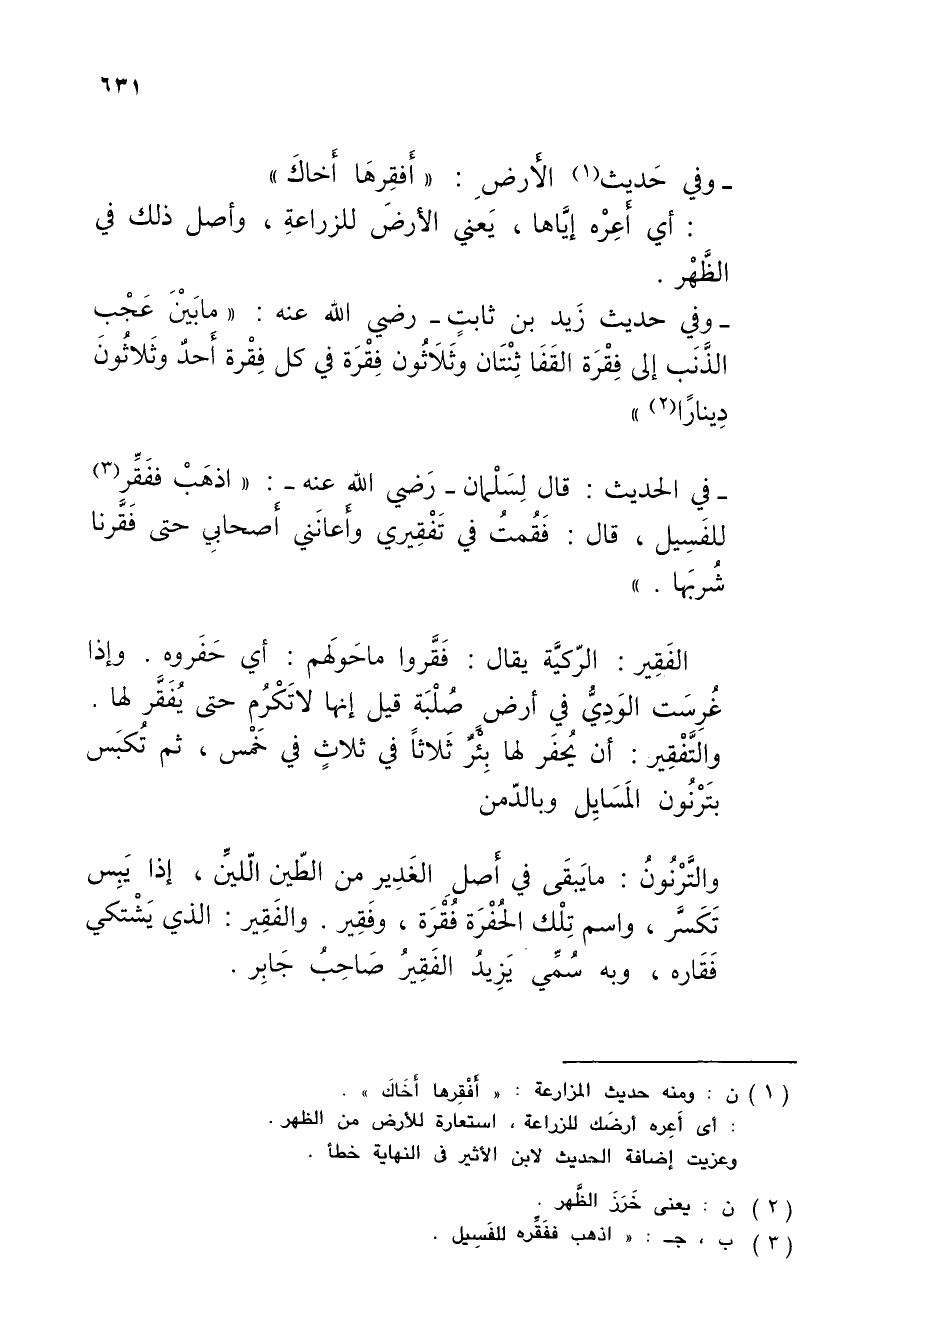 ٦٣١
ـ وفي حَديث(١) الأَرضِ : « أَفقِرهَا أَخاكَ »
: أي أَعِرْه إيَّاها ، يَعني الأرضَ للزراعةِ ، وأصل ذلك في
الظَّهْر .
ـ وفي حديث زَيد بن ثابتٍ ـ رضي الله عنه : « مابَيْنَ عَجْب
الذَّنَب إلى فِقْرَة القَفَا ثِنْتَان وثَلَاثُون فِقْرَة في كل فِقْرة أَحدٌ وثَلاثُونَ
دِينارًا(٢) »
ـ في الحديث : قال لِسَلْمان ـ رَضي الله عنه ـ : « اذهَبْ ففَقِّر(٣)
للفَسِيل ، قال : فَقُمتُ في تَفْقِيري وأَعانَني أَصحابي حتى فَقَّرنا
شُربَها . »
الفَقِير : الرّكيَّة يقال : فَقَّروا ماحَولَهم : أي حَفَروه . وإذا
غُرِسَت الوَدِيُّ في أرضٍ صُلْبَة قيل إنها لاتَكْرُم حتى يُفَقَّر لها .
والتَّفْقِير : أن يُحفَر لها بِئْرٌ ثَلاثاً في ثلاثٍ في خَمْس ، ثم تُكبَس
بتَرْنُون المَسَايِل وبالدّمن
والتَّرْنُونُ : مايَبقَى في أَصلِ الغَدِير من الطّين اللّينِّ ، إذا يَبِس
تَكَسَّر ، واسم تِلْك الحُفْرَة فُقْرَة ، وفَقِير . والفَقِير : الذي يَشْتكي
فَقَاره ، وبه سُمِّي يَزِيدُ الفَقِيرُ صَاحِبُ جَابِر .
(١) ن : ومنه حديث المزارعة : « أَفْقِرها أَخَاكَ » .
: أى أَعِره أرضَك للزراعة ، استعارة للأرض من الظهر .
وعزيت إضافة الحديث لابن الأثير فى النهاية خطأ .
(٢) ن : يعنى خَرَزَ الظَّهر .
(٣) ب ، جـ : « اذهب ففَقِّره للفَسِيل .